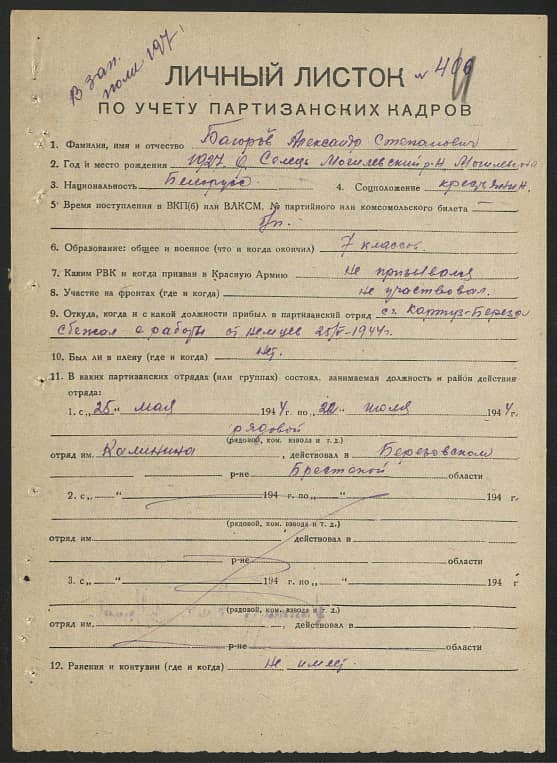 В зап.
ЛИЧНЫЙ ЛИСТОК №
ПО УЧЕТУ ПАРТИЗАНСКИХ КАДРОВ
1. Фамилия, имя и отчество Александр Степанович
2. Год и место рождения 1927 Могилевский р-н, Могилевск
3. Национальность Белорусс 4. Соцположение крестьянин.
5. Время поступления в ВКП(б) или ВЛКСМ, № партийного или комсомольского билета —
б/п.
6. Образование: общее и военное (что и когда окончил) 7 классов.
7. Каким РВК и когда призван в Красную Армию не призывался
8. Участие на фронтах (где и когда) не участвовал.
9. Откуда, когда и с какой должности прибыл в партизанский отряд Картуз-Береза
Сбежал с работы от немцев 25/V-1944г.
10. Был ли в плену (где и когда) нет.
11. В каких партизанских отрядах (или группах) состоял, занимаемая должность и район действия
отряда:
1. с „25“ мая 1944 г. по „22“ июля 1944 г.
рядовой
(рядовой, ком. взвода и т. д.)
отряд им. Калинина, действовал в Березовском
р-не Брестской области
2. с „ “ 194 г. по „ “ 194 г.
(рядовой, ком. взвода и т. д.)
отряд им. , действовал в
р-не области
3. с „ “ 194 г. по „ “ 194 г
(рядовой, ком. взвода и т. д.)
отряд им. , действовал в
р-не области
12. Ранения и контузии (где и когда) не имеет.